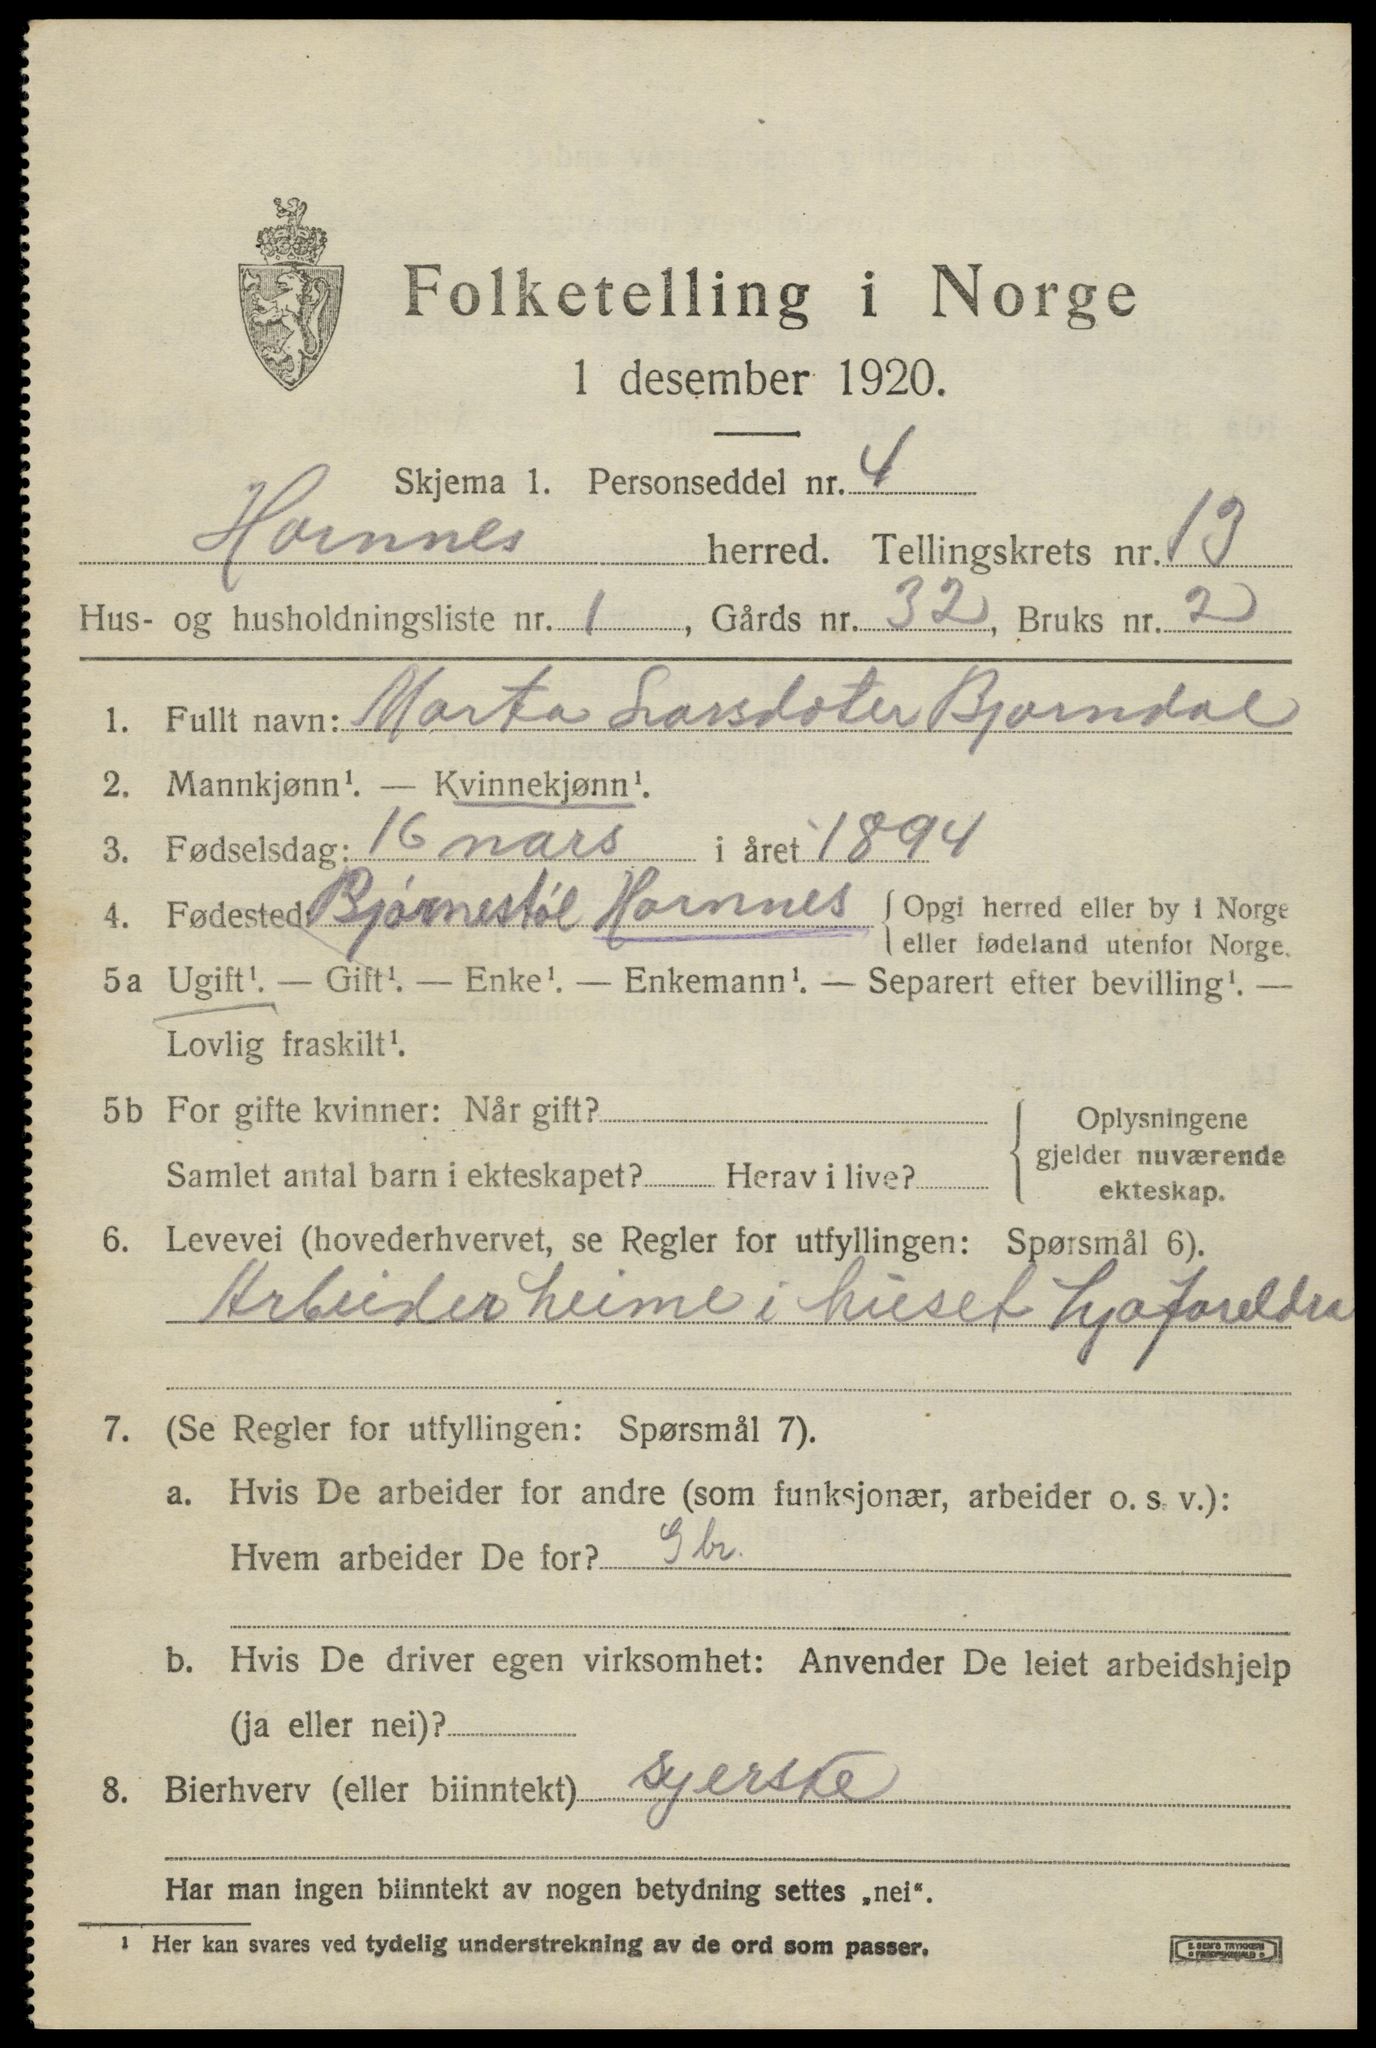 Folketelling i Norge
1 desember 1920.
Skjema 1. Personseddel nr. 4
Hornnes herred. Tellingskrets nr. 13
Hus- og husholdningsliste nr. 1, Gårds nr. 32, Bruks nr. 2
1. Fullt navn: Marta Larsdoter Bjørndal
2. Mannkjønn¹. — Kvinnekjønn¹.
3. Fødselsdag: 16 mars i året 1894
4. Fødested: Bjørnestøl Hornnes { Opgi herred eller by i Norge
eller fødeland utenfor Norge.
5a Ugift¹. — Gift¹. — Enke¹. — Enkemann¹. — Separert efter bevilling¹. —
Lovlig fraskilt¹.
5b For gifte kvinner: Når gift?
Samlet antal barn i ekteskapet? Herav i live?
{ Oplysningene
gjelder nuværende
ekteskap.
6. Levevei (hovederhvervet, se Regler for utfyllingen: Spørsmål 6).
Arbeider heime i huset hja foreldra
7. (Se Regler for utfyllingen: Spørsmål 7).
a. Hvis De arbeider for andre (som funksjonær, arbeider o. s. v.):
Hvem arbeider De for? Gbr.
b. Hvis De driver egen virksomhet: Anvender De leiet arbeidshjelp
(ja eller nei)?
8. Bierhverv (eller biinntekt) syerske
Har man ingen biinntekt av nogen betydning settes „nei“.
¹ Her kan svares ved tydelig understrekning av de ord som passer.